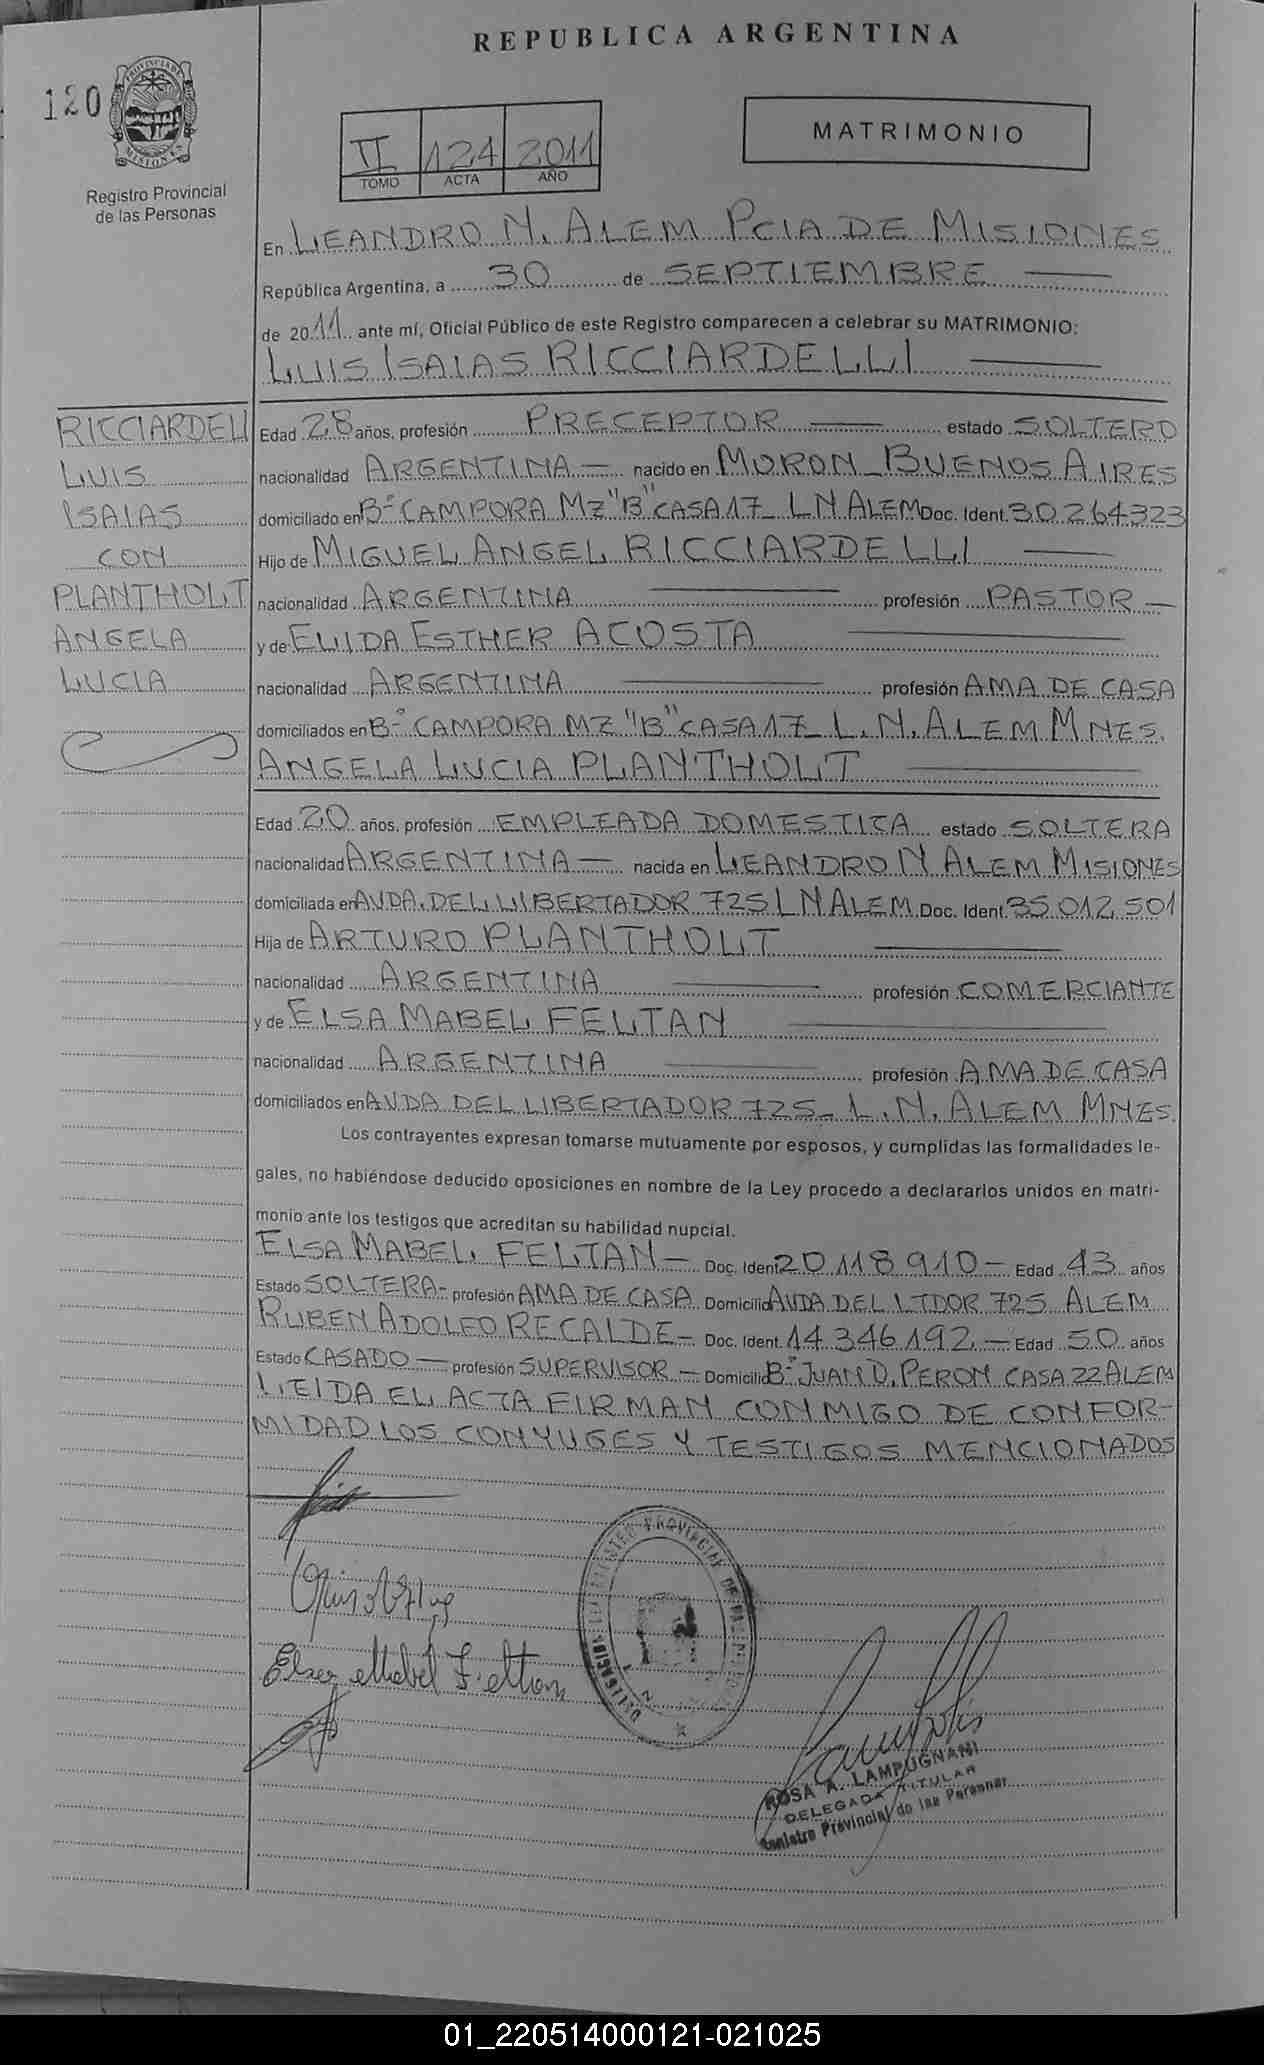 REPUBLICA ARGENTINA
120
PROVINCIA DE
MISIONES
Registro Provincial
de las Personas
II 124 2011
TOMO ACTA AÑO
MATRIMONIO
En LEANDRO N. ALEM PCIA DE MISIONES
República Argentina, a 30 de SEPTIEMBRE
de 2011 ante mí, Oficial Público de este Registro comparecen a celebrar su MATRIMONIO:
LUIS ISAIAS RICCIARDELLI
RICCIARDELLI
LUIS
ISAIAS
CON
PLANTHOLT
ANGELA
LUCIA
Edad 28 años, profesión PRECEPTOR estado SOLTERO
nacionalidad ARGENTINA — nacido en MORON_BUENOS AIRES
domiciliado en Bº CAMPORA MZ "B" CASA 17_ LN ALEM Doc. Ident. 30.264323
Hijo de MIGUEL ANGEL RICCIARDELLI
nacionalidad ARGENTINA profesión PASTOR —
y de ELIDA ESTHER ACOSTA
nacionalidad ARGENTINA profesión AMA DE CASA
domiciliados en Bº CAMPORA MZ "B" CASA 17_ L.N. ALEM MNES.
ANGELA LUCIA PLANTHOLT
Edad 20 años, profesión EMPLEADA DOMESTICA estado SOLTERA
nacionalidad ARGENTINA — nacida en LEANDRO N ALEM MISIONES
domiciliada en AVDA. DEL LIBERTADOR 725 L N ALEM Doc. Ident. 35.012.501
Hija de ARTURO PLANTHOLT
nacionalidad ARGENTINA profesión COMERCIANTE
y de ELSA MABEL FELTAN
nacionalidad ARGENTINA profesión AMA DE CASA
domiciliados en AVDA DEL LIBERTADOR 725_ L.N. ALEM MNES.
Los contrayentes expresan tomarse mutuamente por esposos, y cumplidas las formalidades le-
gales, no habiéndose deducido oposiciones en nombre de la Ley procedo a declararlos unidos en matri-
monio ante los testigos que acreditan su habilidad nupcial.
ELSA MABEL FELTAN — Doc. Ident 20.118.910 — Edad 43 años
Estado SOLTERA - profesión AMA DE CASA Domicilio AVDA DEL LTDOR 725 ALEM
RUBEN ADOLFO RECALDE — Doc. Ident. 14.346.192. — Edad 50 años
Estado CASADO — profesión SUPERVISOR — Domicilio Bº JUAN D. PERON CASA 22 ALEM
LEIDA EL ACTA FIRMAN CONMIGO DE CONFOR-
MIDAD LOS CONYUGES Y TESTIGOS MENCIONADOS
Elsa Mabel Feltan
ROSA A. LAMPUGNANI
DELEGADA TITULAR
Registro Provincial de las Personas
01_220514000121-021025